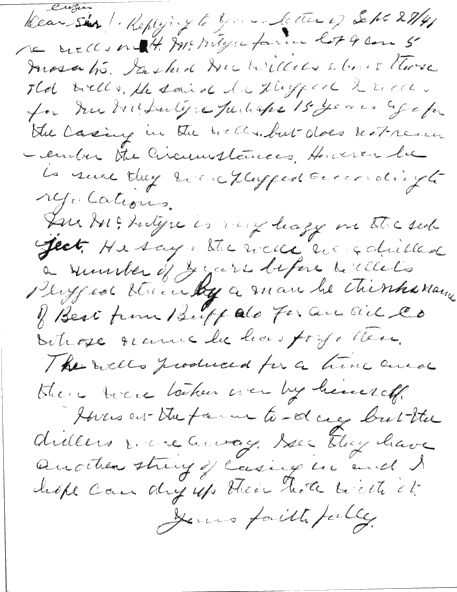 Dear Sir! - Replying to your letter of Sept 27/41
re wells on H. McIntyre farm lot 9 con 5
Mosa Tp. I asked Mr Willets about those
old wells. He said he plugged 2 wells
for Mr McIntyre perhaps 15 years ago for
the casing in the wells, but does not rem
- ember the circumstances. However he
is sure they were plugged according to
regulations.
Mr McIntyre is very hazy on the sub
ject. He says the wells were drilled
a number of years before Willets
plugged them by a man he thinks name
of Best from Buffalo for an oil Co
whose name he has forgotten.
The wells produced for a time and
then were taken over by himself.
I was at the farm to-day but the
drillers were away. I see they have
another string of casing in and I
hope can dry up their hole with it.
Yours faithfully.